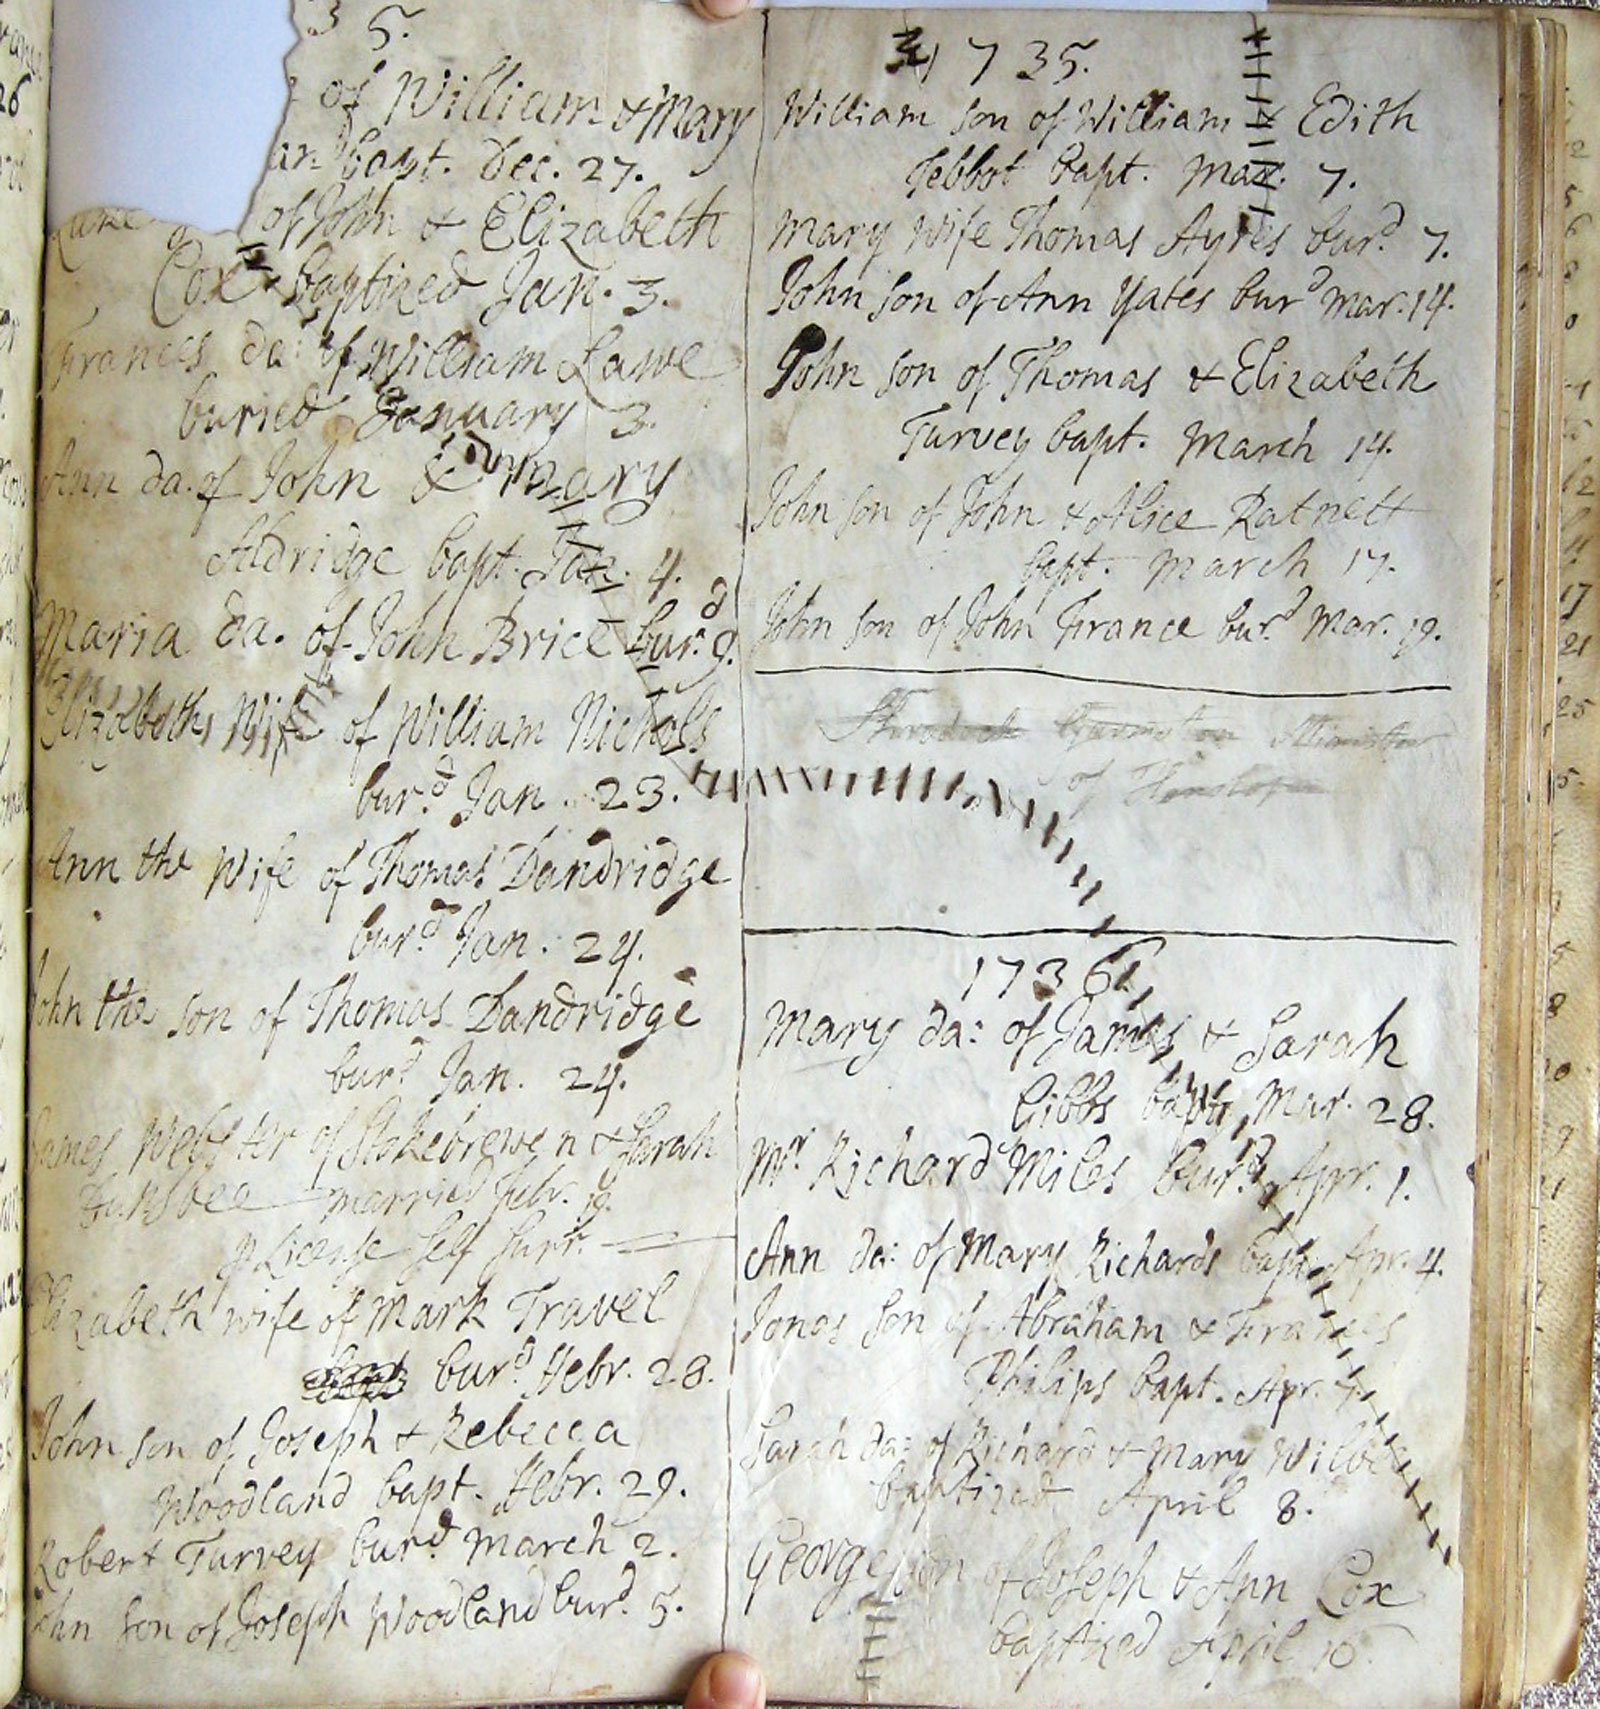 35.
of William & Mary
bapt. Dec. 27.
Luke of John & Elizabeth
Cox baptized Jan. 3.
Frances da: of William Lawe
buried January 3.
Ann da. of John & Mary
Aldridge bapt. Jan. 4.
Maria da. of John Brice bur.d 9.
Elizabeth Wife of William Nicholls
bur.d Jan. 23.
Ann the Wife of Thomas Dandridge
bur.d Jan. 24.
John the son of Thomas Dandridge
bur.d Jan. 24.
James Webster of Stokebrewen & Sarah
married Febr. 19.
p License self Surr.
Elizabeth wife of Mark Travel
bur.d Febr. 28.
John son of Joseph & Rebecca
Woodland bapt. Febr. 29.
Robert Turvey bur.d March 2.
John son of Joseph Woodland bur.d 5.
1735.
William son of William & Edith
Tebbot bapt. Mar. 7.
Mary Wife Thomas Ayres bur.d 7.
John son of Ann Yates bur.d Mar. 14.
John son of Thomas & Elizabeth
Turvey bapt. March 14.
John son of John & Alice Ratnett
bapt. March 17.
John son of John France bur.d Mar. 19.
Minister
of
1736
Mary da: of James & Sarah
Gibbs bapt. Mar. 28.
Mr. Richard Miles bur.d Apr. 1.
Ann da: of Mary Richards bapt. Apr. 4.
Jonas son of Abraham & Frances
Philips bapt. Apr. 7.
Sarah da: of Richard & Mary
baptized April 8.
George son of Joseph & Ann Cox
baptized April